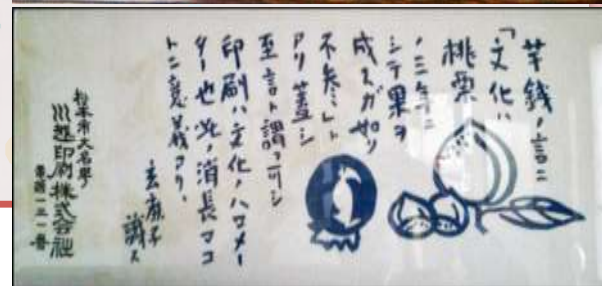 芋銭ノ言ニ
「文化ハ
桃栗
ノ三年ニ
シテ果ヲ
成スガ如
アリ蓋シ
至言ト謂フ可シ
印刷ハ文化ノバロメー
ター也此ノ消長マコ
トニ意義アリ、
識ス
松本市大名町
川越印刷株式会社
電話一三一番